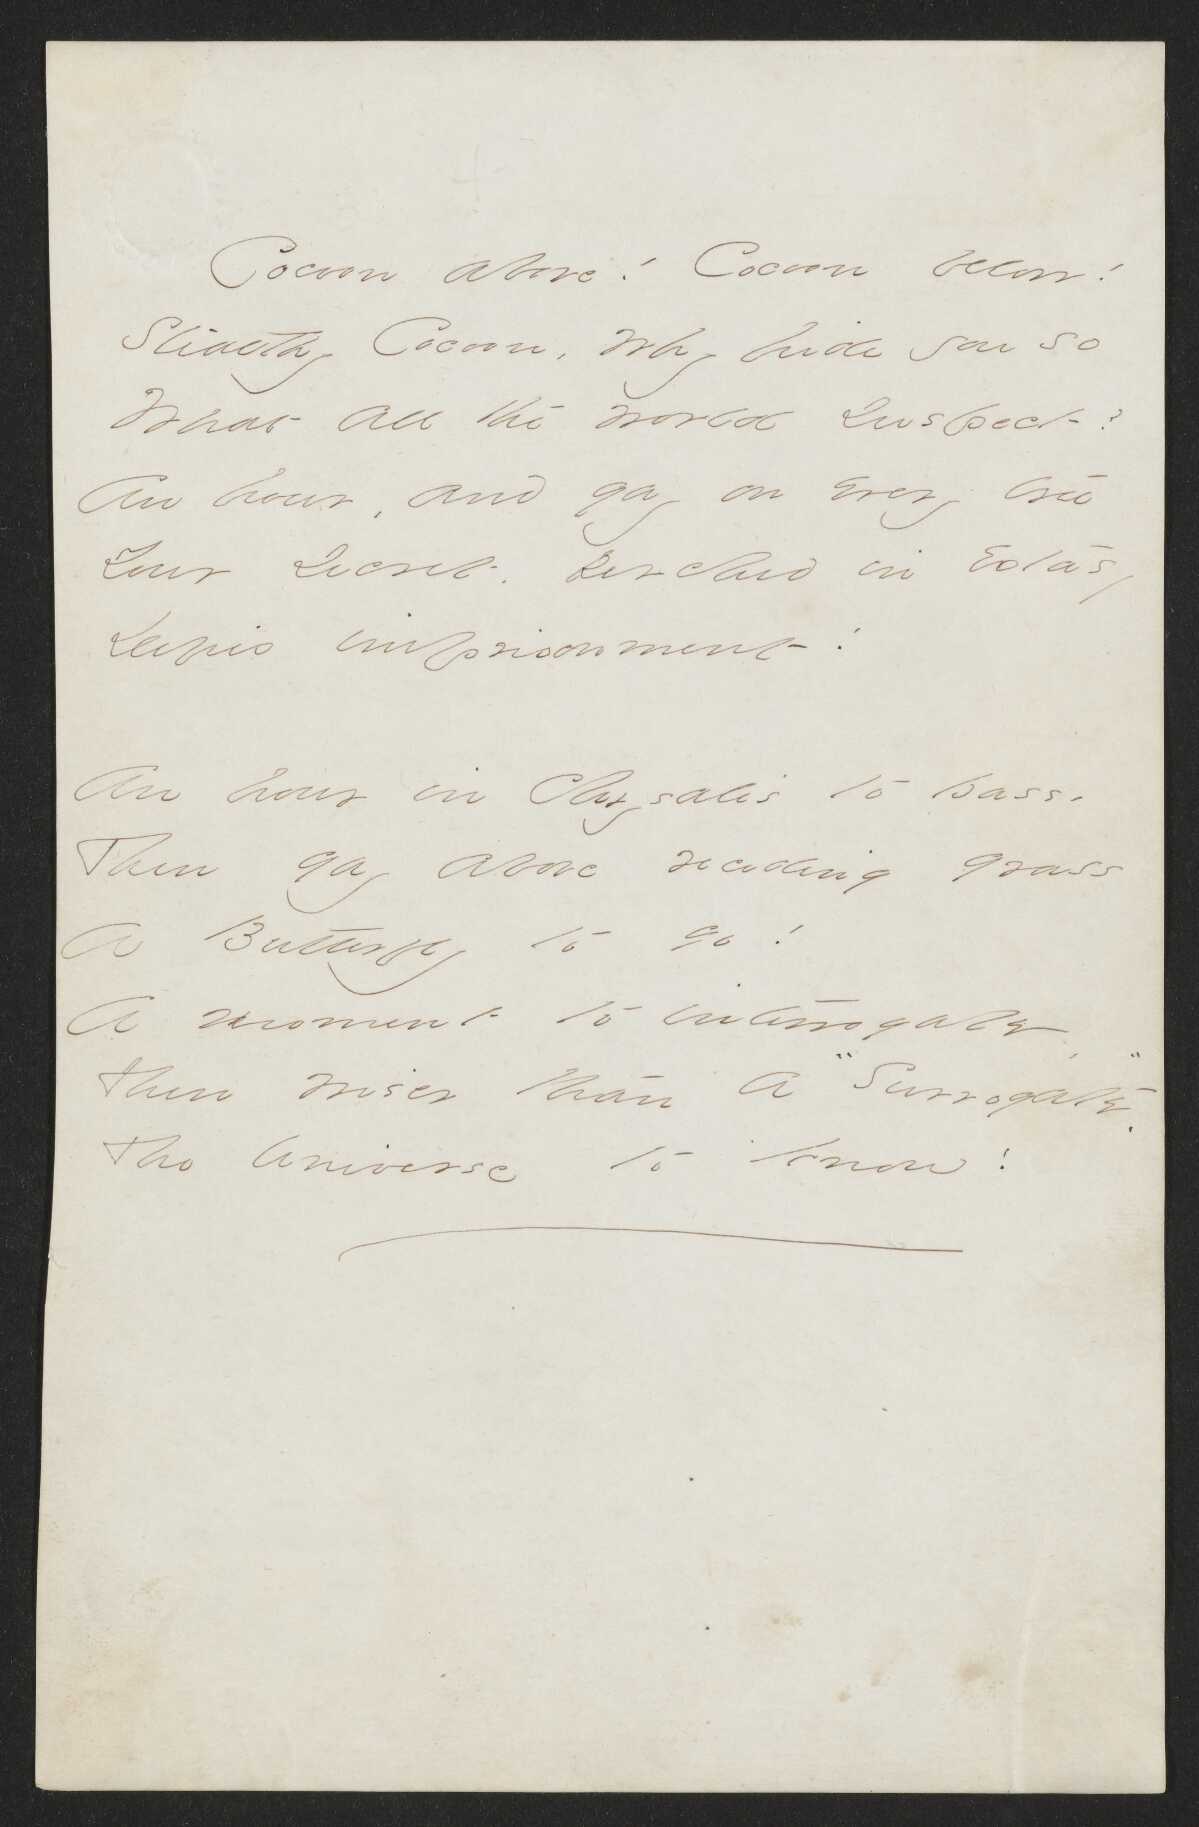 Cocoon above! Cocoon below!
Stealthy Cocoon, why hide you so
What all the world suspect?
An hour, and gay on every tree
Your secret, perched in extasy
Defies imprisonment!
An hour in Chrysalis to pass,
Then gay above receding grass
A Butterfly to go!
A moment to interrogate,
Then wiser than a "Surrogate",
The Universe to know!